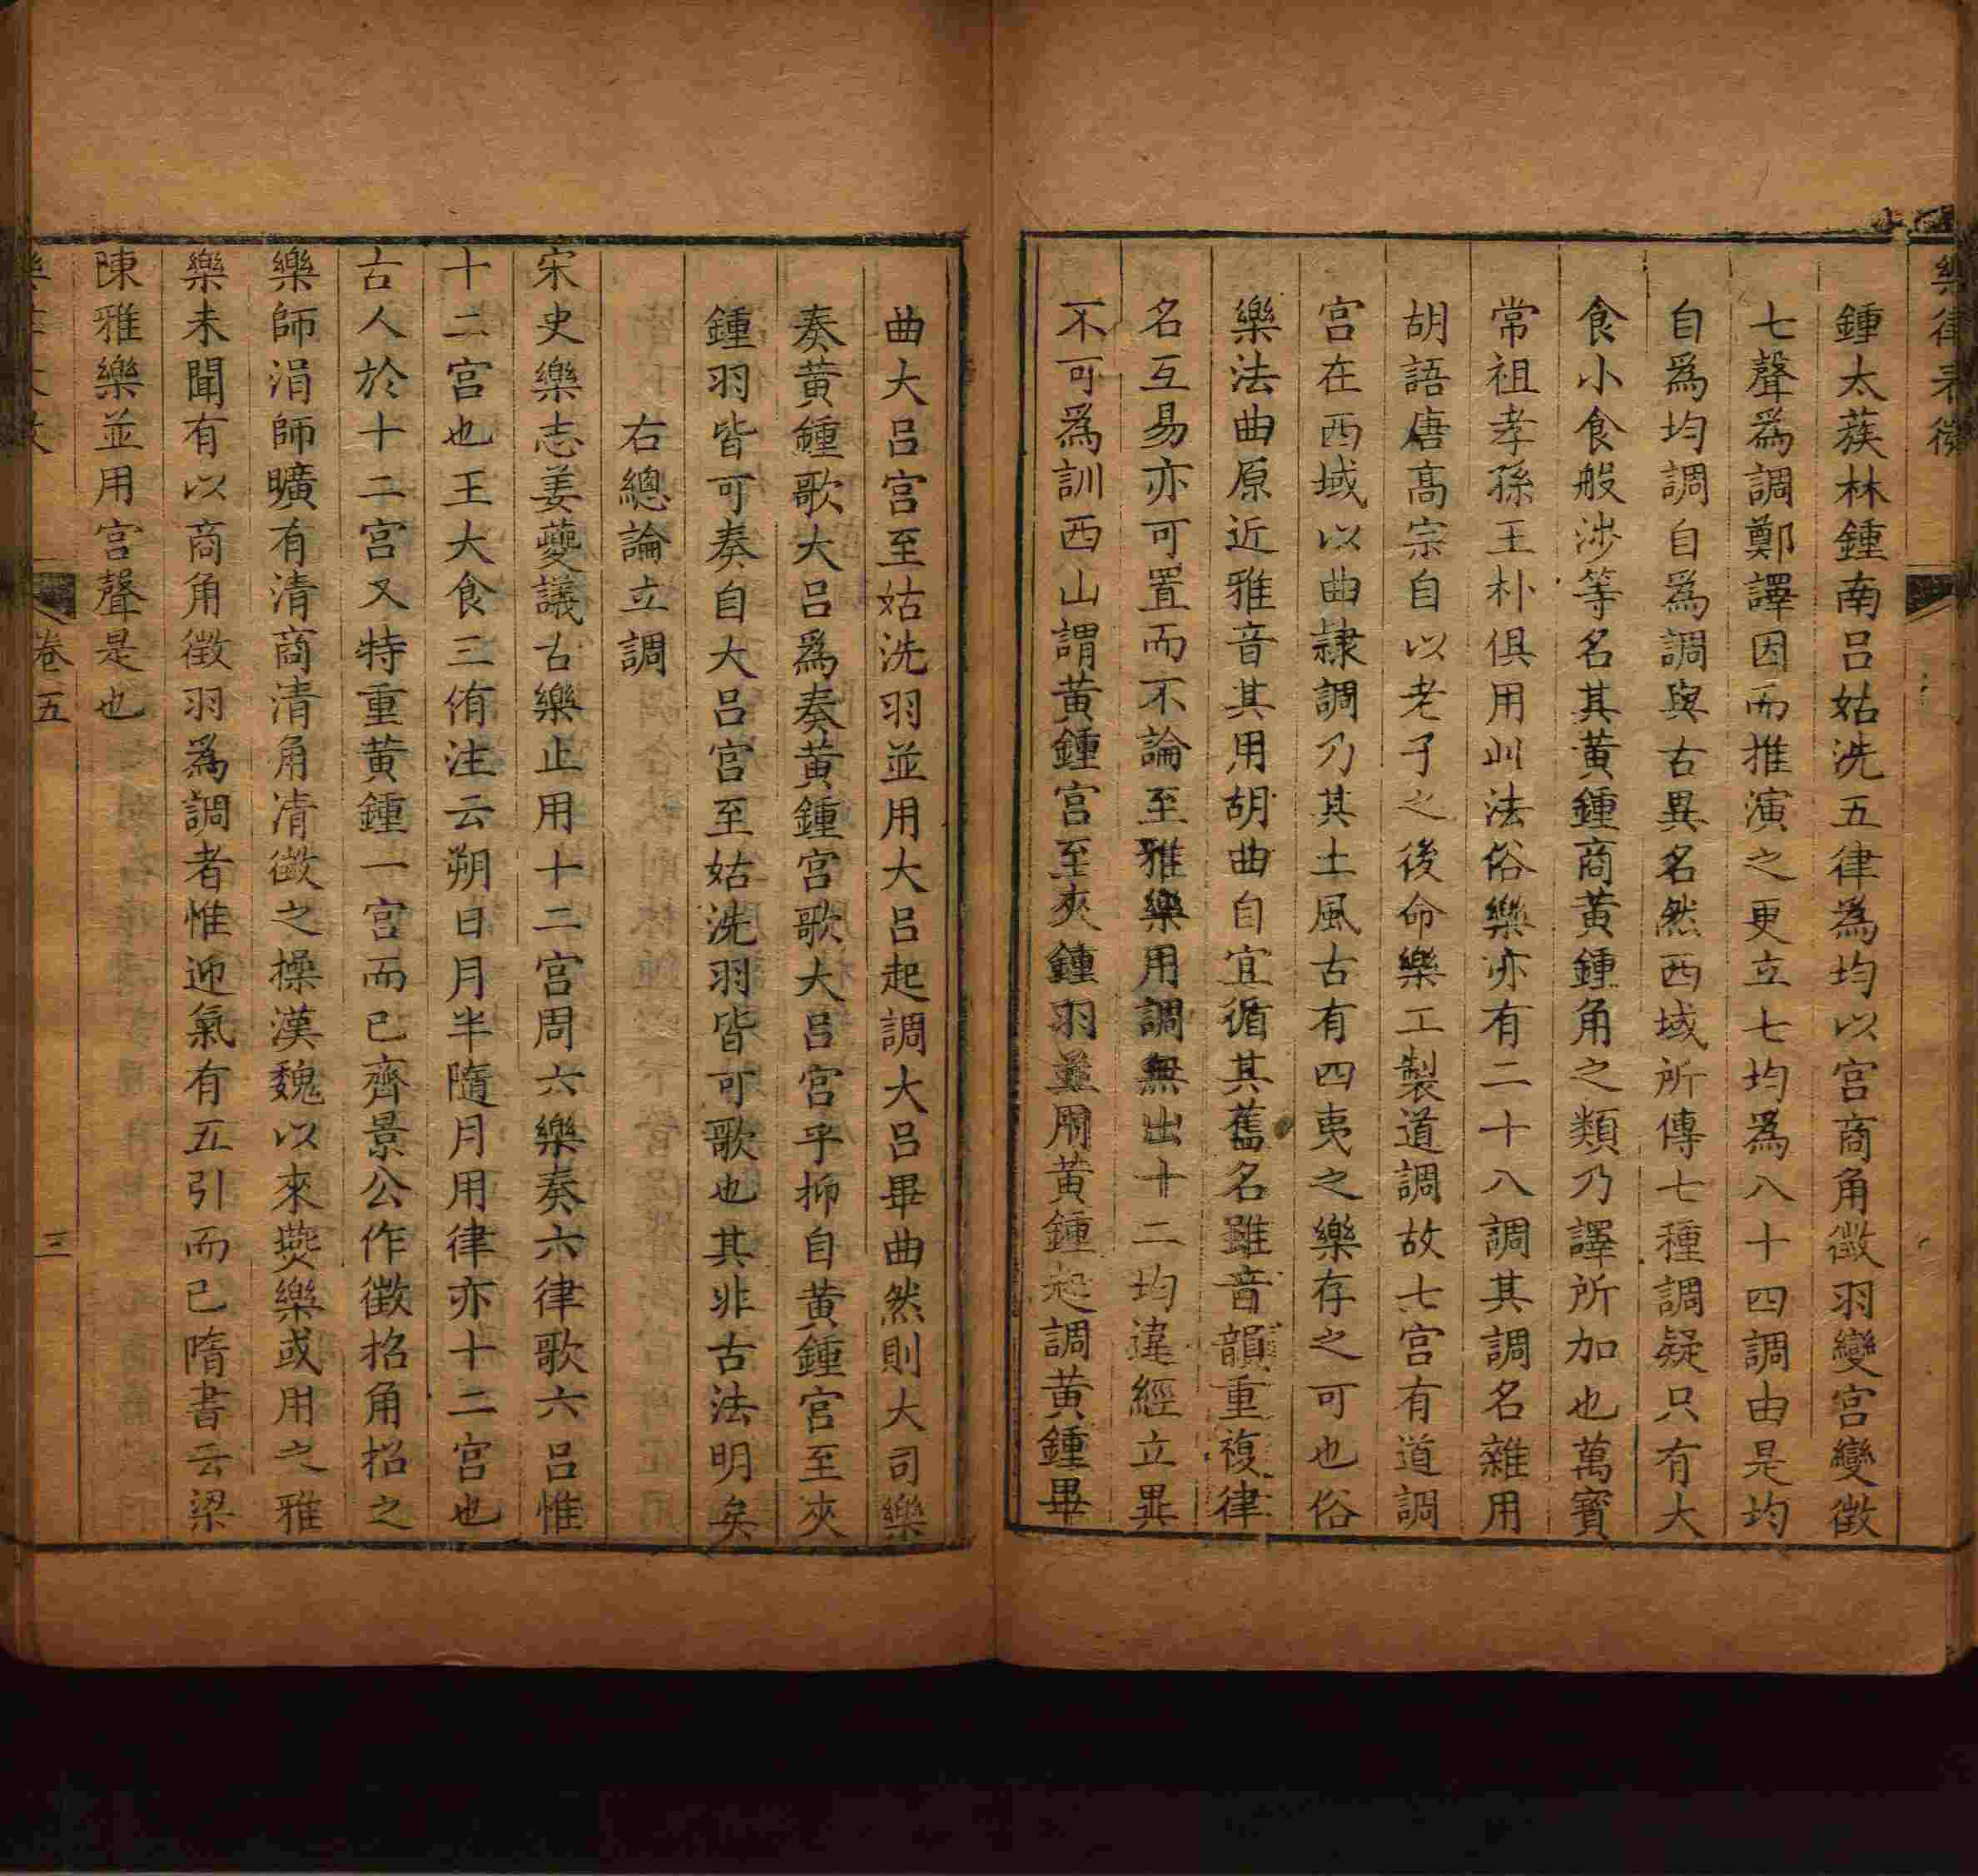 樂律表微
鍾太蔟林鍾南呂姑洗五律為均以宮商角徵羽變宮變徵
七聲爲調鄭譯因而推演之更立七均爲八十四調由是均
自爲均調自爲調與古異名然西域所傳七種調疑只有大
食小食般涉等名其黃鍾商黃鍾角之類乃譯所加也萬寶
常祖孝孫王朴俱用此法俗樂亦有二十八調其調名雜用
胡語唐高宗自以老子之後命樂工製道調故七宮有道調
宮在西域以曲隸調乃其土風古有四夷之樂存之可也俗
樂法曲原近雅音其用胡曲自宜循其舊名雖音韻重複律
名互易亦可置而不論至雅樂用調無出十二均違經立異
不可爲訓西山謂黃鍾宮至夾鍾羽並用黃鍾起調黃鍾畢
曲大呂宮至姑洗羽並用大呂起調大呂畢曲然則大司樂
奏黃鍾歌大呂爲奏黃鍾宮歌大呂宮乎抑自黃鍾宮至夾
鍾羽皆可奏自大呂宮至姑洗羽皆可歌也其非古法明矣
右總論立調
宋史樂志姜夔議古樂止用十二宮周六樂奏六律歌六呂惟
十二宮也王大食三侑注云朔日月半隨月用律亦十二宮也
古人於十二宮又特重黃鍾一宮而已齊景公作徵招角招之
樂師涓師曠有清商清角清徵之操漢魏以來燕樂或用之雅
樂未聞有以商角徵羽爲調者惟迎氣有五引而已隋書云梁
陳雅樂並用宮聲是也
卷五
三